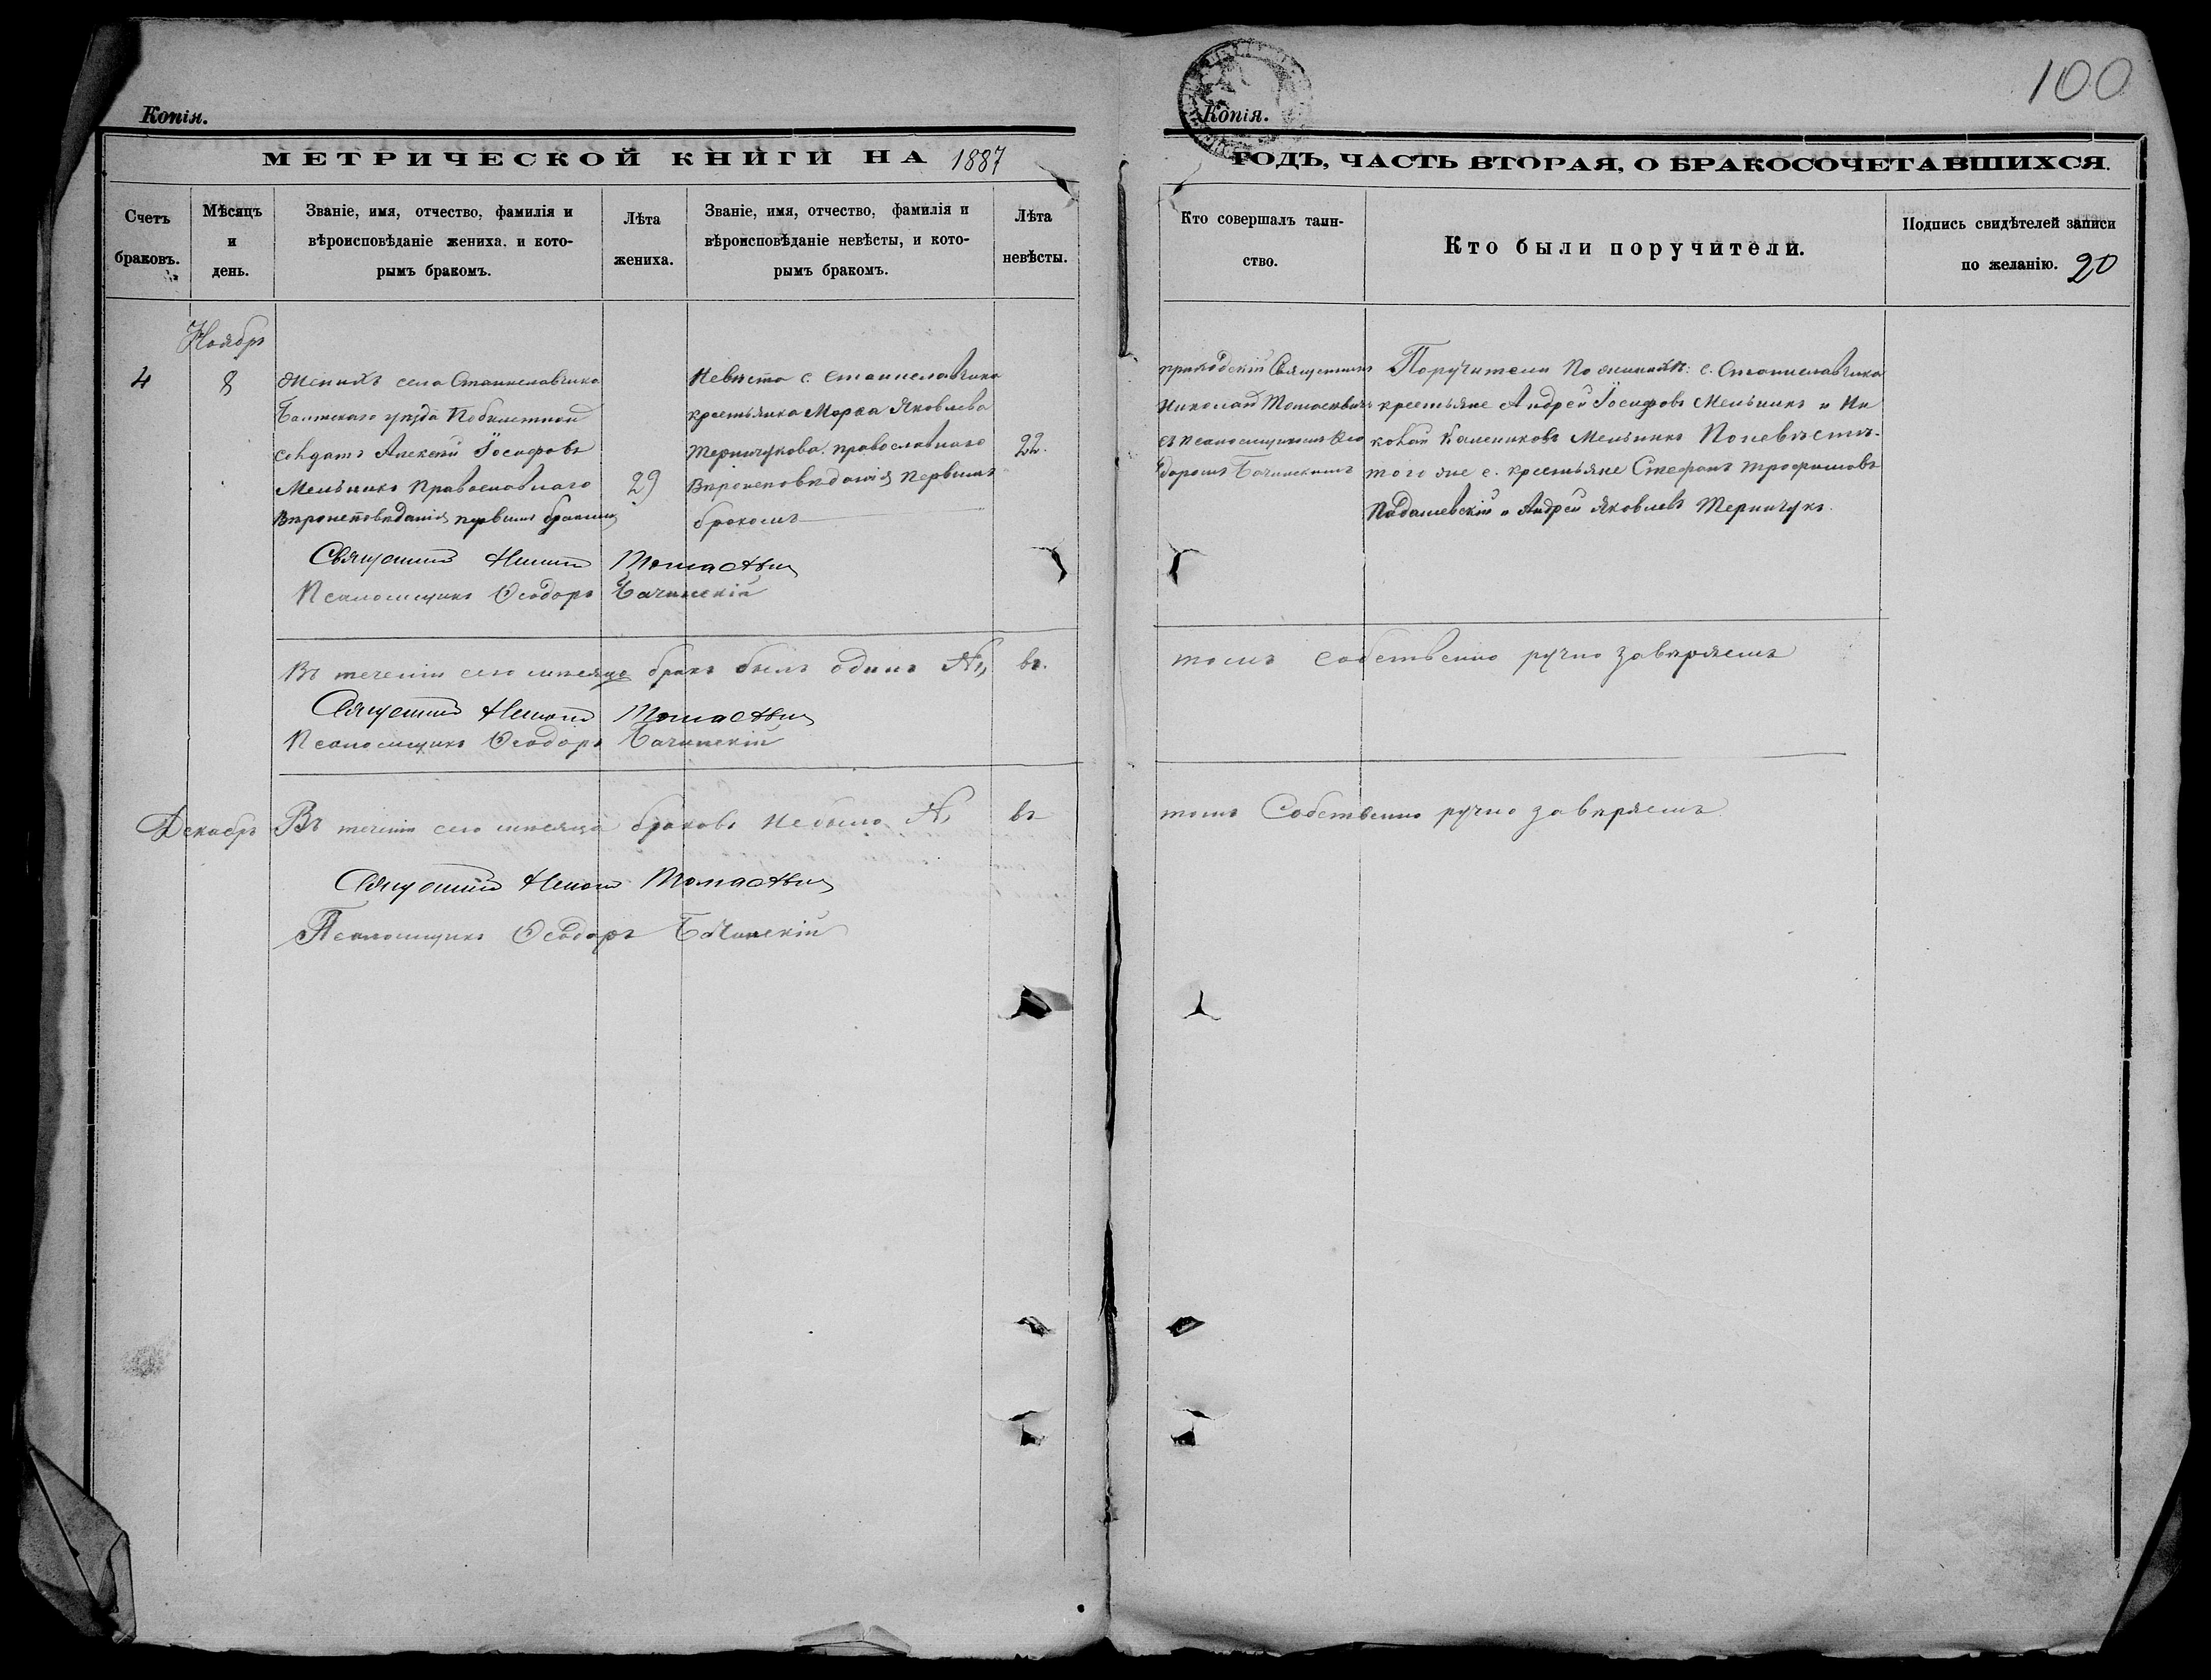 Копія.
МЕТРИЧЕСКОЙ КНИГИ НА 1887
Счетъ браковъ.
Мѣсяцъ и день.
Званіе, имя, отчество, фамилія и
вѣроисповѣданіе жениха, и кото-
рымъ бракомъ.
Лѣта жениха.
Званіе, имя, отчество, фамилія и
вѣроисповѣданіе невѣсты, и кото-
рымъ бракомъ.
Лѣта невѣсты.
Ноябрь
4
8
Женихъ села Станиславчика
Балтскаго уѣзда
солдатъ Алексѣй Іосифовъ
Мельникъ Православнаго
Вѣроисповѣданія первымъ бракомъ
29
Невѣста с. Станиславчика
крестьянка Яковлева
православнаго
Вѣроисповѣданія Первымъ
бракомъ
22.
Священникъ
Псаломщикъ Ѳеодоръ Бачинскій
Въ теченіи сего мѣсяца бракъ былъ одинъ въ
Священникъ
Псаломщикъ Ѳеодоръ Бачинскій
Декабрь
Въ теченіи сего мѣсяца браковъ небыло въ
Священникъ
Псаломщикъ Ѳеодоръ Бачинскій
100
Копія.
ГОДЪ, ЧАСТЬ ВТОРАЯ, О БРАКОСОЧЕТАВШИХСЯ.
Кто совершалъ таин-
ство.
Кто были поручители.
Подпись свидѣтелей записи
по желанію. 20
приходскій Священникъ
Николай
съ псаломщикомъ Ѳео
доромъ Бачинскимъ
Поручители По женихѣ: с. Станиславчика
крестьяне Андрей Іосифовъ Мельникъ и Ни
колай Мельникъ По невѣстѣ.
того же с. крестьяне Стефанъ Трофимовъ
и Андрей Яковлевъ
томъ собственно ручно завѣряемъ
томъ Собственно ручно завѣряемъ